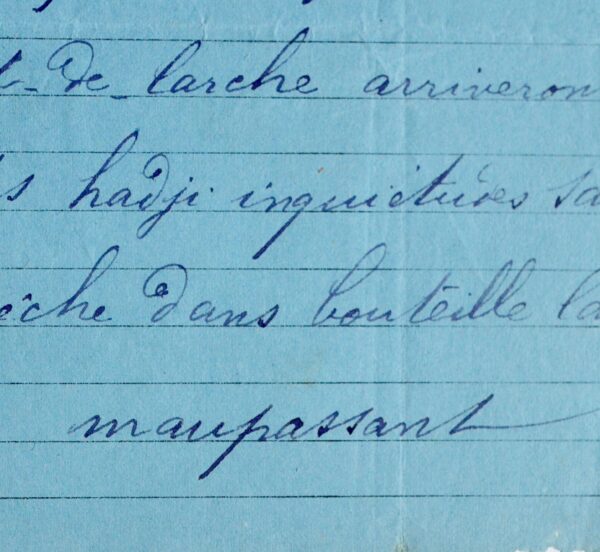 t-de-larche arriveron
s hadji inquiètudes sa
êche dans bouteille la
maupassant